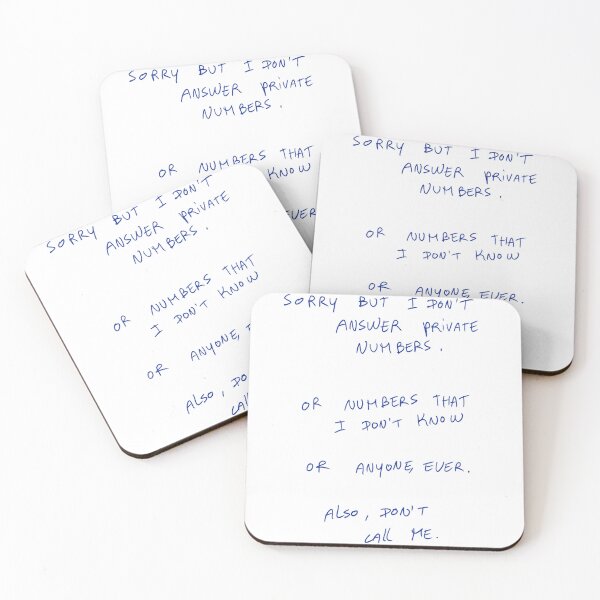 SORRY BUT I DON'T
ANSWER PRIVATE
NUMBERS.
OR NUMBERS THAT
KNOW
EVER
SORRY BUT I DON'T
ANSWER PRIVATE
NUMBERS.
OR NUMBERS THAT
I DON'T KNOW
OR ANYONE, EVER.
SORRY BUT I DON'T
ANSWER PRIVATE
NUMBERS.
OR NUMBERS THAT
I DON'T KNOW
OR ANYONE,
ALSO, DO
CAL
SORRY BUT I DON'T
ANSWER PRIVATE
NUMBERS.
OR NUMBERS THAT
I DON'T KNOW
OR ANYONE, EVER.
ALSO, DON'T
CALL ME.